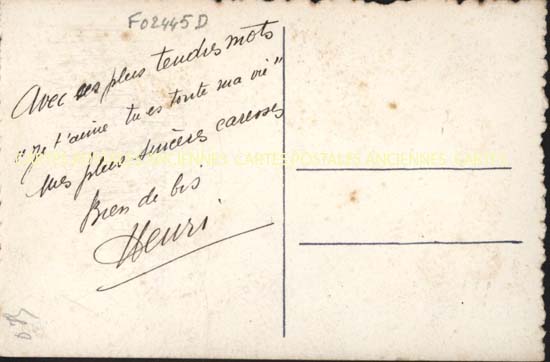 F02445D
Avec ses plus tendres mots
"Je t'aime tu es toute ma vie"
Mes plus sincères caresses
Bien de bs
Henri
CARTES POSTALES ANCIENNES CARTES POSTALES ANCIENNES CARTES